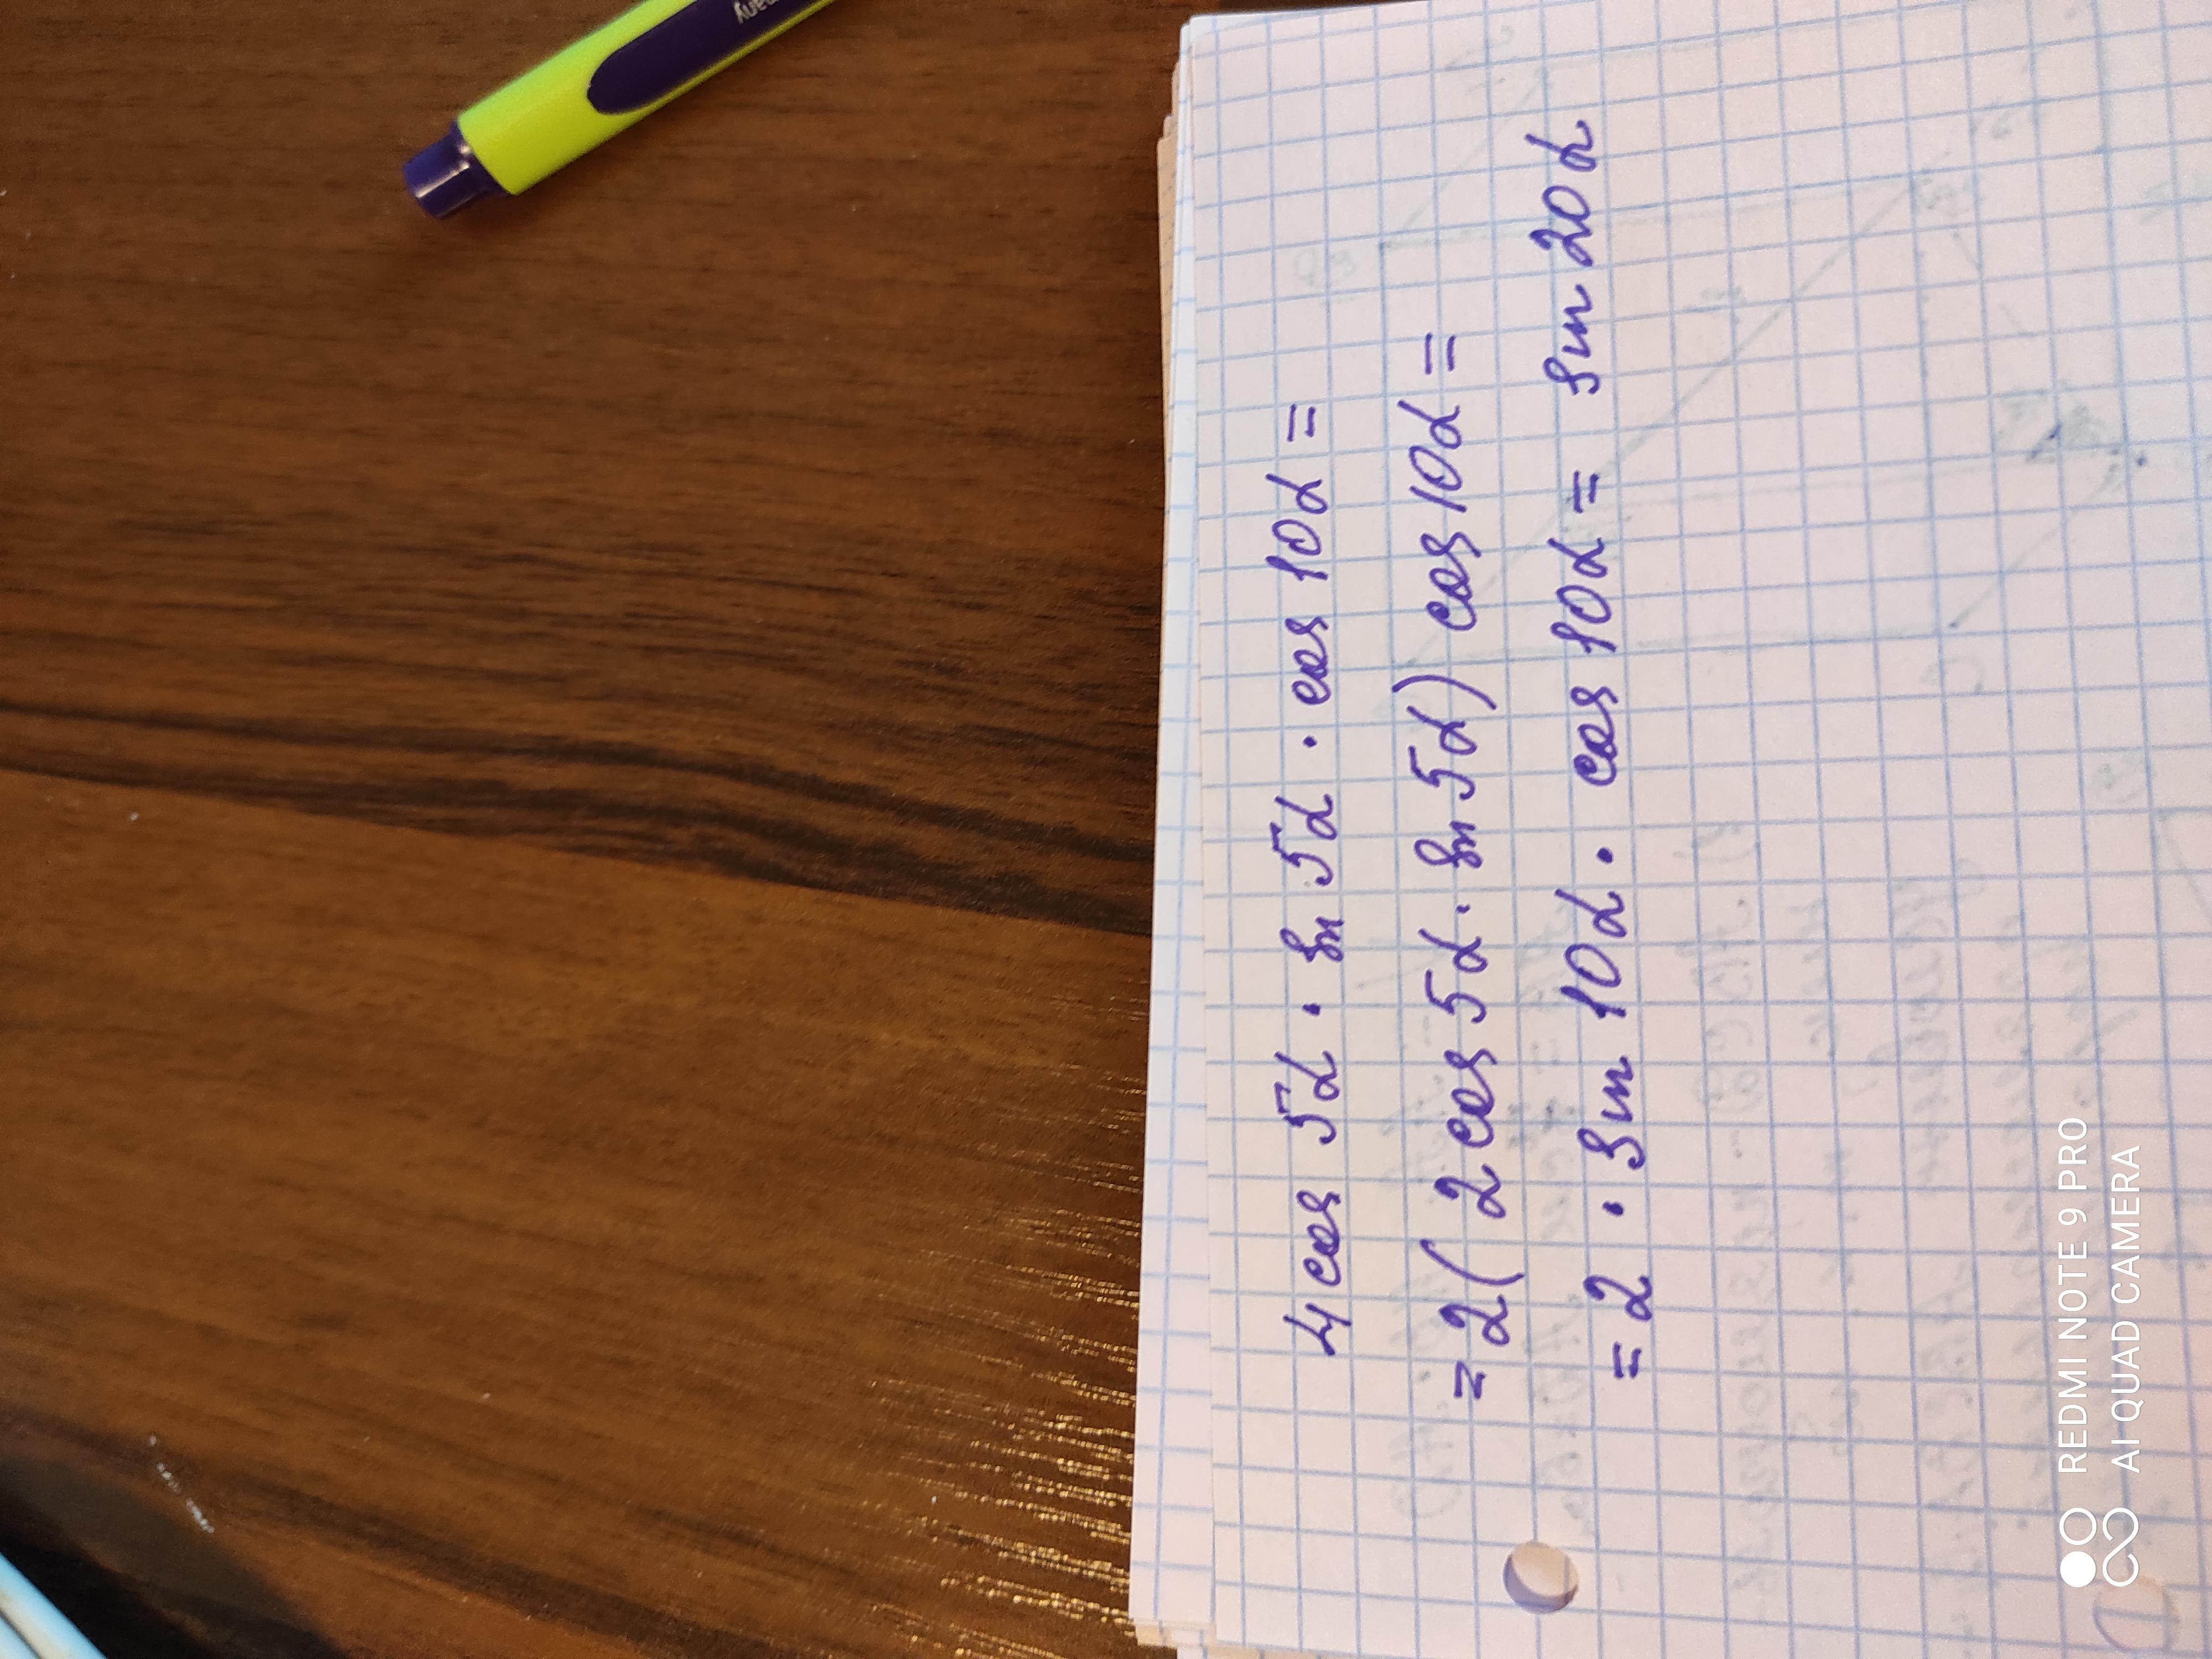 4 cos 5α · sin 5α · cos 10α =
= 2( 2 cos 5α · sin 5α) cos 10α =
= 2 · sin 10α · cos 10α = sin 20α
REDMI NOTE 9 PRO
AI QUAD CAMERA